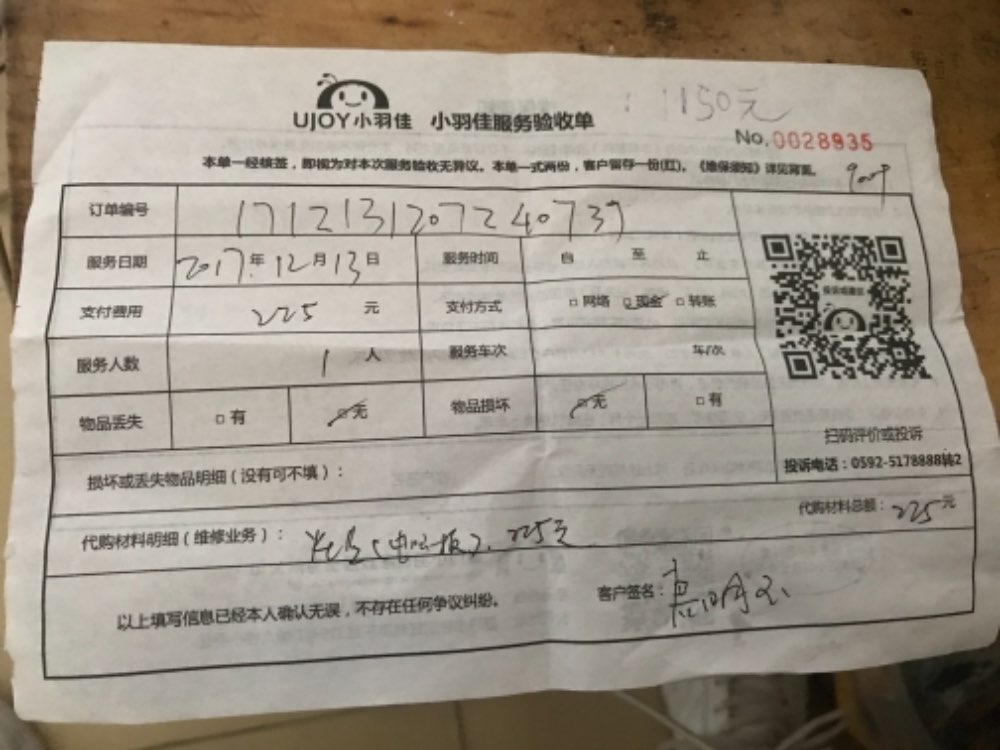 1150元
UJOY小羽佳 小羽佳服务验收单
No.0028935
本单一经核签，即视为对本次服务验收无异议。本单一式两份，客户留存一份(红)。《维保须知》详见背面。
订单编号 171213120724073
服务日期 2017年12月13日 服务时间 自 至 止
支付费用 225 元 支付方式 □网络 □现金 □转账
服务人数 1 人 服务车次 车/次
物品丢失 □有 □无 物品损坏 □无 □有
扫码评价或投诉
投诉电话：0592-5178888转2
损坏或丢失物品明细（没有可不填）：
代购材料总额：225元
代购材料明细（维修业务）： (电脑板)、225元
客户签名：
以上填写信息已经本人确认无误，不存在任何争议纠纷。